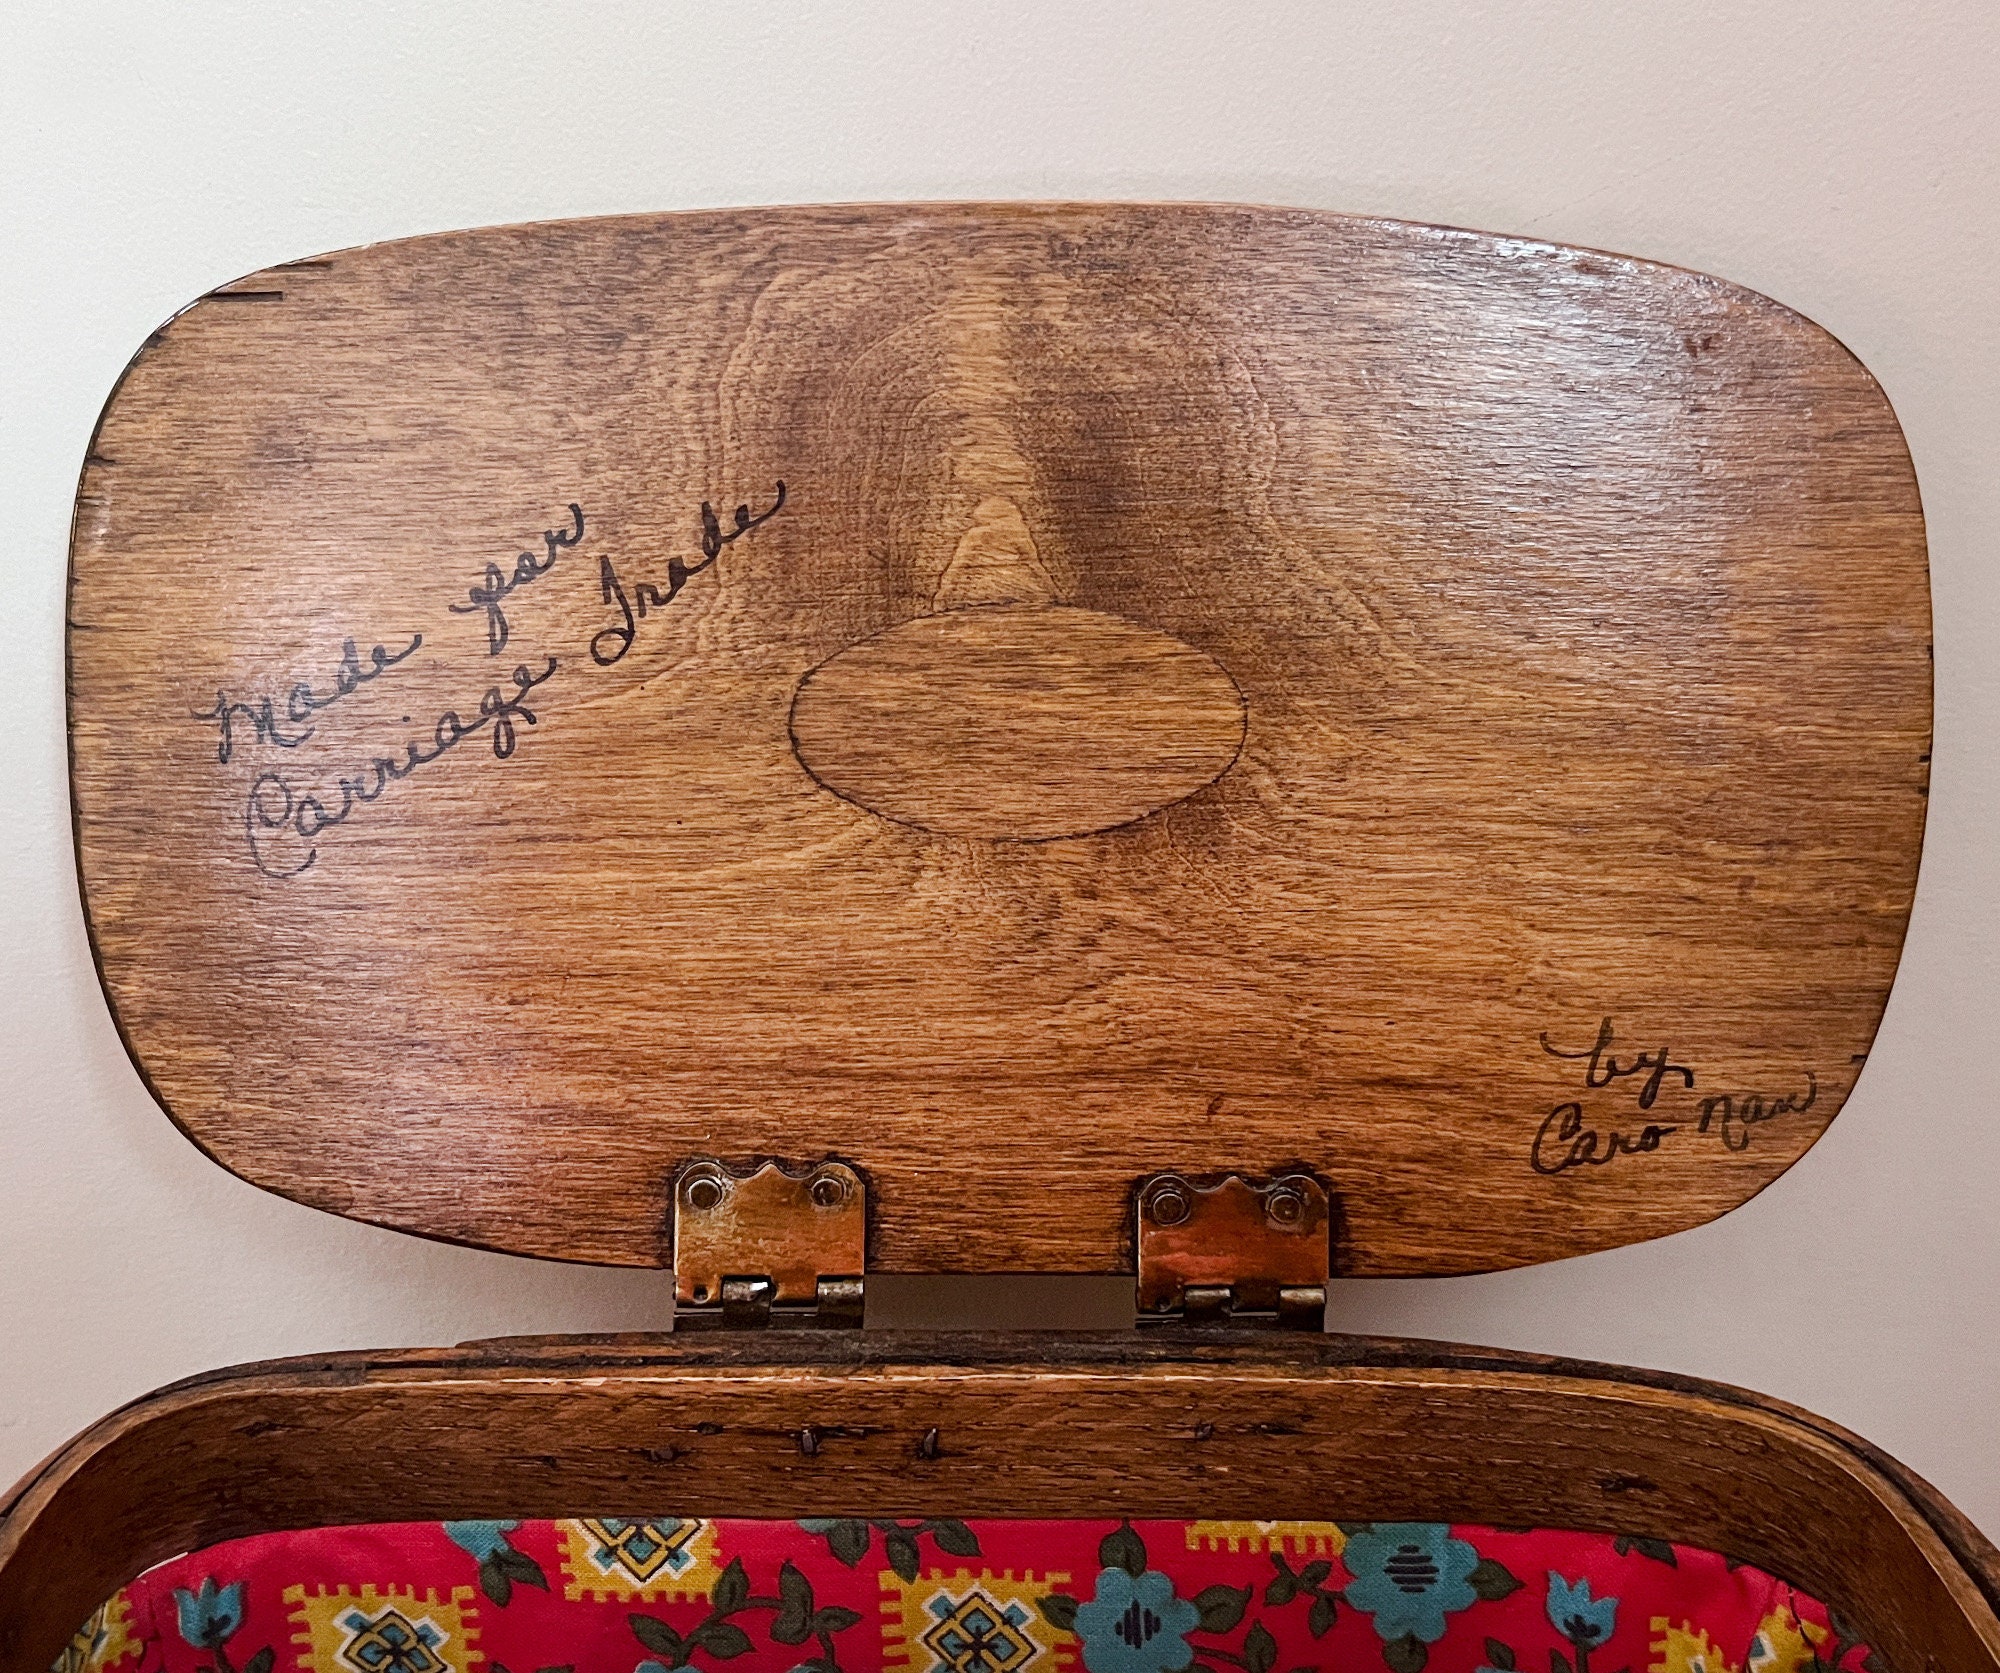 Made for
Carriage Trade
by
Caro Nan